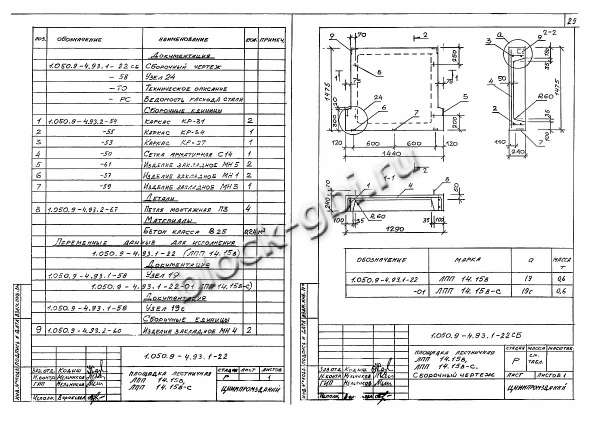 ПОЗ. ОБОЗНАЧЕНИЕ НАИМЕНОВАНИЕ КОЛ. ПРИМЕЧ.
Документация
1.050.9-4.93.1-22 СБ Сборочный чертеж
-58 Узел 24
-ТО Техническое описание
-РС Ведомость расхода стали
Сборочные единицы
1 1.050.9-4.93.2-54 Каркас КР-31 2
2 -55 Каркас КР-44 1
3 -53 Каркас КР-27 1
4 -50 Сетка арматурная С14 1
5 -61 Изделие закладное МН5 2
6 -57 Изделие закладное МН1 2
7 -59 Изделие закладное МН3 1
Детали
8 1.050.9-4.93.2-67 Петля монтажная П3 4
Материалы
Бетон класса В25
Переменные данные для исполнения
1.050.9-4.93.1-22 (ЛПП 14.15в)
Документация
1.050.9-4.93.1-58 Узел 19
1.050.9-4.93.1-22-01 (ЛПП 14.15в-с)
Документация
1.050.9-4.93.1-58 Узел 19с
Сборочные единицы
9 1.050.9-4.93.2-60 Изделие закладное МН4 2
1.050.9-4.93.1-22
Площадка лестничная
ЛПП 14.15в,
ЛПП 14.15в-с
СТАДИЯ ЛИСТ ЛИСТОВ
Р 1
ЦНИИпромзданий
25
2
2-2
1475
300
120 600 600 120
1440
24
250
200
1-1
1290
R60
35
100
110
240
ОБОЗНАЧЕНИЕ МАРКА а МАССА Т
1.050.9-4.93.1-22 ЛПП 14.15в 19 0,6
-01 ЛПП 14.15в-с 19с 0,6
1.050.9-4.93.1-22СБ
Площадка лестничная
ЛПП 14.15в,
ЛПП 14.15в-с.
Сборочный чертеж
СТАДИЯ МАССА МАСШТАБ
Р см. табл.
ЛИСТ ЛИСТОВ 1
ЦНИИпромзданий
block-gbi.ru